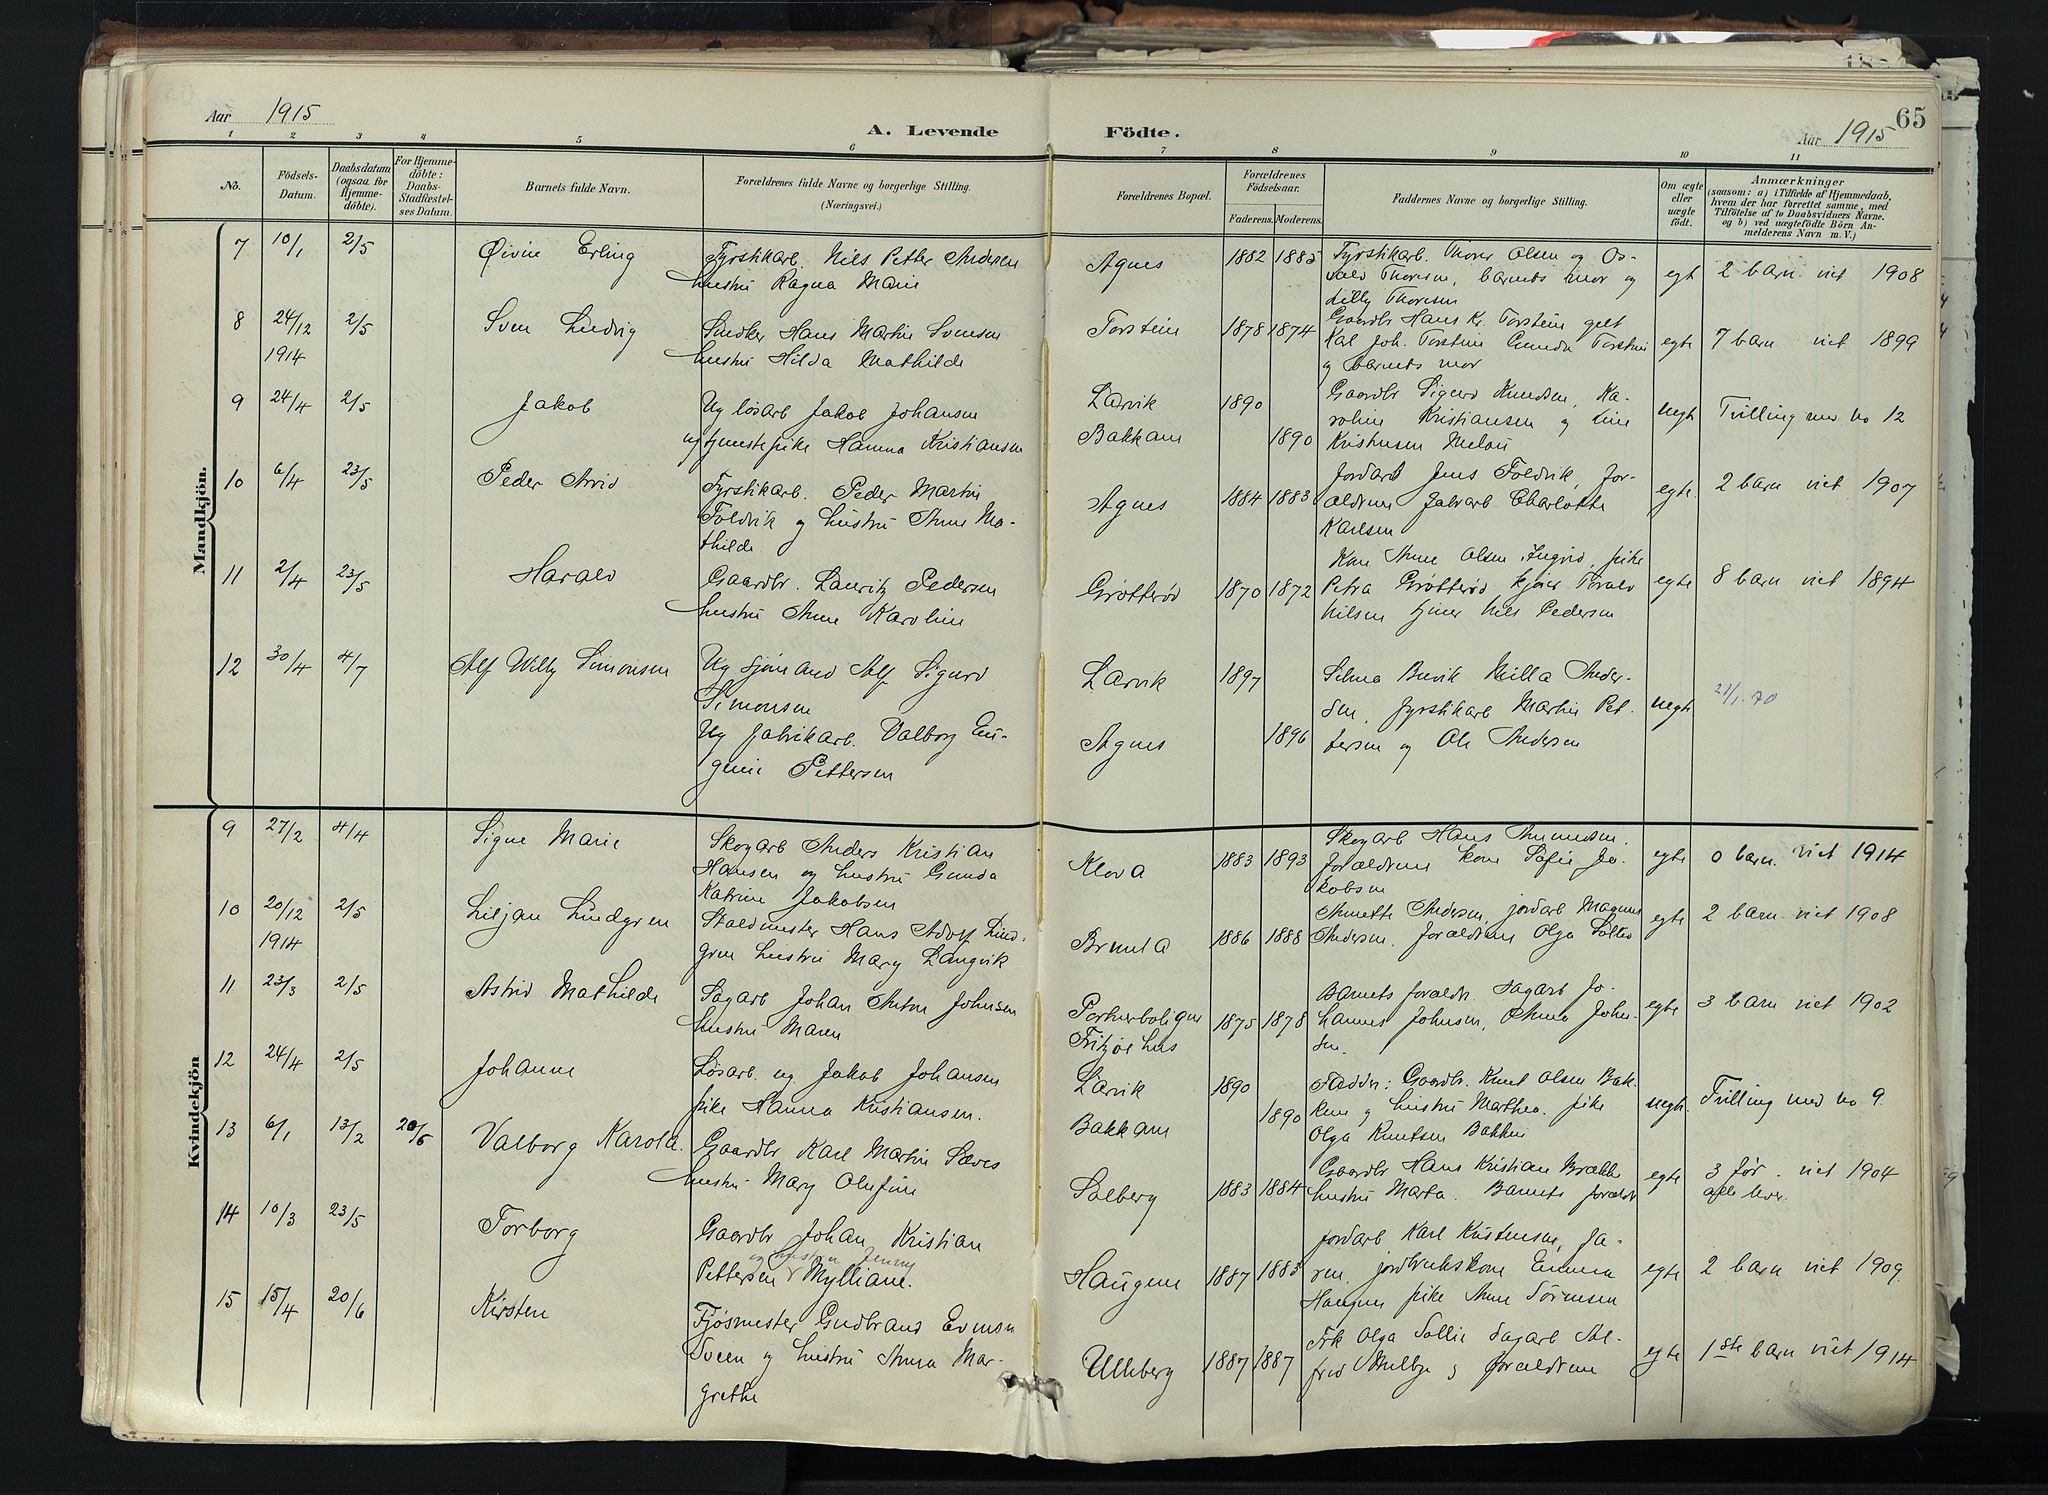 Aar 1915
A. Levende Födte.
65
Aar 1915
1 2 3 4 5 6 7 8 9 10 11
No.
Födsels-Datum.
Daabsdatum (ogsaa for Hjemme-döbte).
For Hjemme-döbte: Daabs-Stadfæstel-ses Datum.
Barnets fulde Navn.
Forældrenes fulde Navne og borgerlige Stilling. (Næringsvei.)
Forældrenes Bopæl.
Forældrenes Födselsaar.
Faderens. Moderens.
Faddernes Navne og borgerlige Stilling.
Om ægte eller uægte födt.
Anmærkninger
(saasom: a) i Tilfælde af Hjemmedaab, hvem der har forrettet samme, med Tilföielse af to Daabsvidners Navne. og b) ved uægtefödte Börn An-melderens Navn m. V.)
Mandkjön.
7 10/1 2/5 Øivin Erling Fyrstikarb. Nils Petter Andersen
hustru Ragna Marie
Agnes 1882 1885 Fyrstikarb. Thorer Olsen og Os-
vald Thoresen, barnets mor og
Lilly Thoresen
egt 2 barn viet 1908
8 24/12 1914 2/5 Sven Ludvig Smdker Hans Martin Svensen
hustru Hilda Mathilde
Torstein 1878 1874 Gaardbr Hans Kr. Torstein gift
Karl Joh. Torstein Gunda Torstein
og barnets mor
egte 7 barn viet 1899
9 24/4 2/5 Jakob Ug løsarb Jakob Johansen
ug tjenestepike Hanna Kristiansen
Larvik 1890
Bakkane 1890
Gaardbr Sigurd Knudsen, Ka-
roline Kristiansen og Line
Kristensen
uegt Tvilling med no 12
10 6/4 23/5 Peder Arvid Fyrstikarb. Peder Martin
Foldvik og hustru Anne Ma-
thilde
Agnes 1884 1883 Jordarb Jens Foldvik, for-
ældrene fabrarb Charlotte
Karlsen
egte. 2 barn viet 1907
11 2/4 23/5 Harald Gaardbr. Lauritz Pedersen
hustru Anne Karoline
Grøtterød 1870 1872 Kone Anne Olsen Ingrid, pike
Petra Grøtterød, kjører Torald
Nilsen tjener Nils Pedersen
egte 8 barn viet 1894
12 30/4 4/7 Alf Willy Simonsen Ug sjømand Alf Sigurd
Simonsen
Ug fabrikarb. Valborg Eu-
genie Pettersen
Larvik 1897
Agnes 1896
Selma Brevik Milla Ander-
sen, fyrstikarb Martin Pet-
tersen og Ole Andersen
uegte
21/1.70
Kvindekjön
9 27/2 4/4 Signe Marie Skogarb Anders Kristian
Hansen og hustru Gunda
Katrine Jakobsen
Klova 1883 1893 Skogarb Hans Amundsen,
forældrene kone Sofie Ja-
kobsen
egte 0 barn. viet 1914
10 20/12 1914 2/5 Liljan Lindgren Staldmester Hans Adolf Lind-
gren hustru Mary Langvik
Brunla 1886 1888 Annette Andersen, jordarb Magnus
Andersen, forældrene Olga Solted
egte 2 barn viet 1908
11 23/3 2/5 Astrid Mathilde Sagarb Johan Anton Johnsen
hustru Maren
Portnerboligen
Fritzøehus
1875 1878 Barnets forældr. Sagarb Jo-
hannes Johnsen, Anna John-
sen.
egte 3 barn viet 1902
12 24/4 2/5 Johanne Løsarb. ug Jakob Johansen
pike Hanna Kristiansen.
Larvik 1890
Bakkane 1890
Faddr: Gaardbr. Knut Olsen Bak-
kene og hustru Mathea. pike
Olga Knutsen Bakken
uegte. Tvilling med no 9.
13 6/1 13/2 20/6 Valborg Karola. Gaardbr Karl Martin Sæves
hustru Mary Olufine
Solberg 1883 1884 Gaardbr Hans Kristian Brække
hustru Marta. Barnets forældr
egte 3 før. viet 1904
alle lever.
14 10/3 23/5 Torborg Gaardbr Johan Kristian
og hustru Jenny
Pettersen Mylliane.
Haugene 1887 1883 Jordarb Karl Kristensen, Ja-
ren, jordbrukskone Emma
Haugen pike Anne Sørensen
egte 2 barn viet 1909
15 15/4 20/6 Kirsten Fjøsmester Gudbrand Evensen
Sveen og hustru Anna Mar-
grethe
Ulleberg 1887 1887 Frk Olga Sollie Sagarb Al-
fred Melbye og forældrene
egte 1ste barn viet 1914